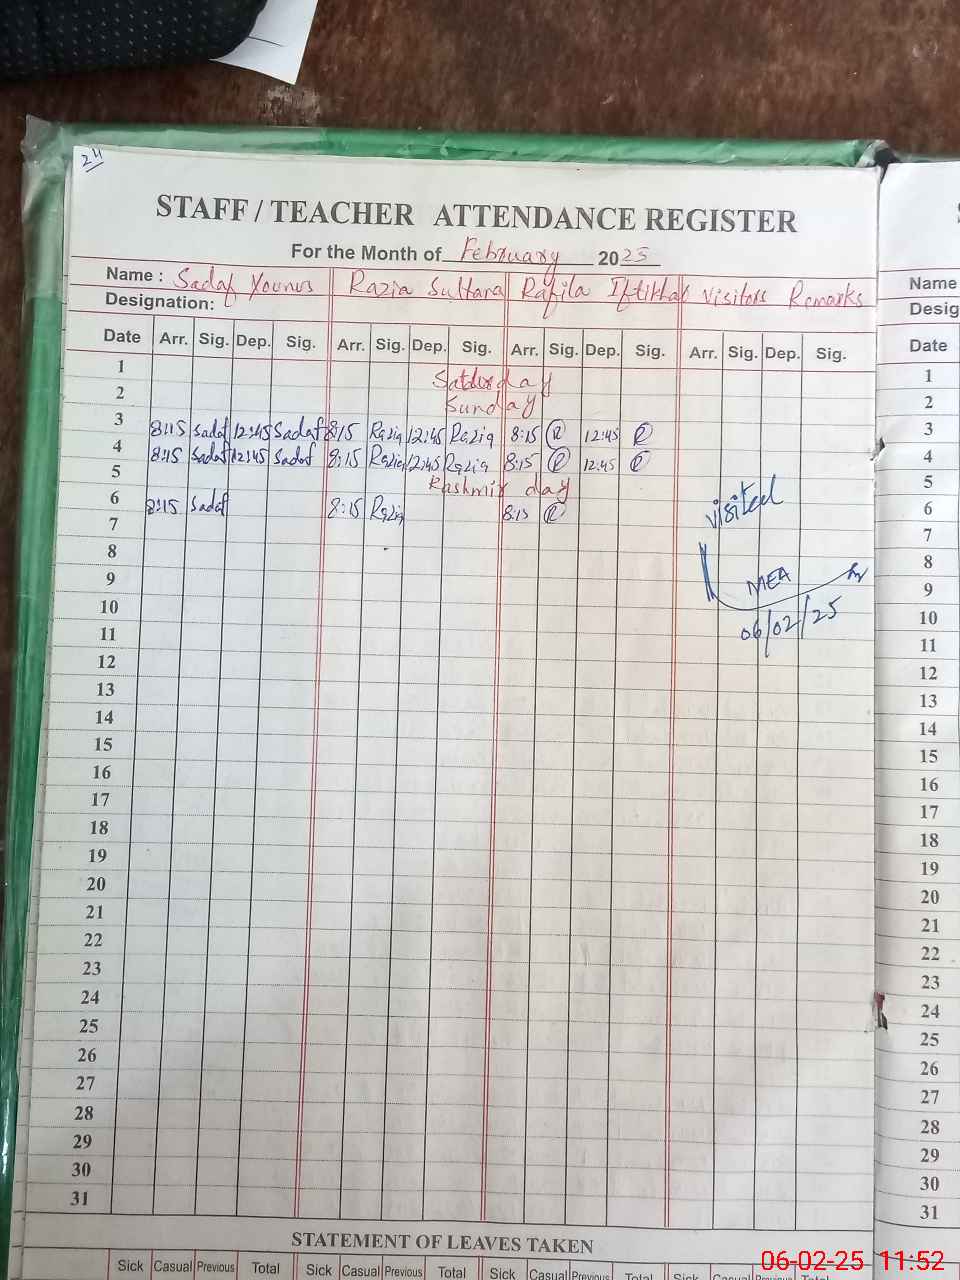 24
STAFF / TEACHER ATTENDANCE REGISTER
For the Month of February 2025
Name : Sadaf Younus Razia Sultana Rafila Iftikhab Visitors Remarks Name
Designation: Desig
Date Arr. Sig. Dep. Sig. Arr. Sig. Dep. Sig. Arr. Sig. Dep. Sig. Arr. Sig. Dep. Sig. Date
1 Saturday 1
2 Sunday 2
3 8:15 Sadaf 12:45 Sadaf 8:15 Razia 12:45 Razia 8:15 R 12:45 R 3
4 8:15 Sadaf 12:45 Sadaf 8:15 Razia 12:45 Razia 8:15 R 12:45 R 4
5 Kashmir day 5
6 8:15 Sadaf 8:15 Razia 8:15 R visited 6
7 7
8 8
9 MEA 9
10 06/02/25 10
11 11
12 12
13 13
14 14
15 15
16 16
17 17
18 18
19 19
20 20
21 21
22 22
23 23
24 24
25 25
26 26
27 27
28 28
29 29
30 30
31 31
STATEMENT OF LEAVES TAKEN
Sick Casual Previous Total Sick Casual Previous Total Sick Casual Previous Total Sick Casual Previous Total
06-02-25 11:52